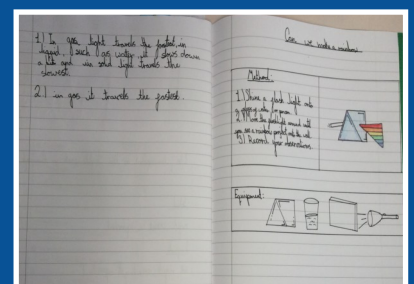 1.) In gas light travels the fastest, in
liquid, such as water it slows down
a little and in solid light travels the
slowest.
2.) in gas it travels the fastest.
Can we make a rainbow
Method:
1.) Shine a flash light into
a prism.
2.) Move the flashlight around until
you see a rainbow the wall.
3.) Record your observations.
Equipment: